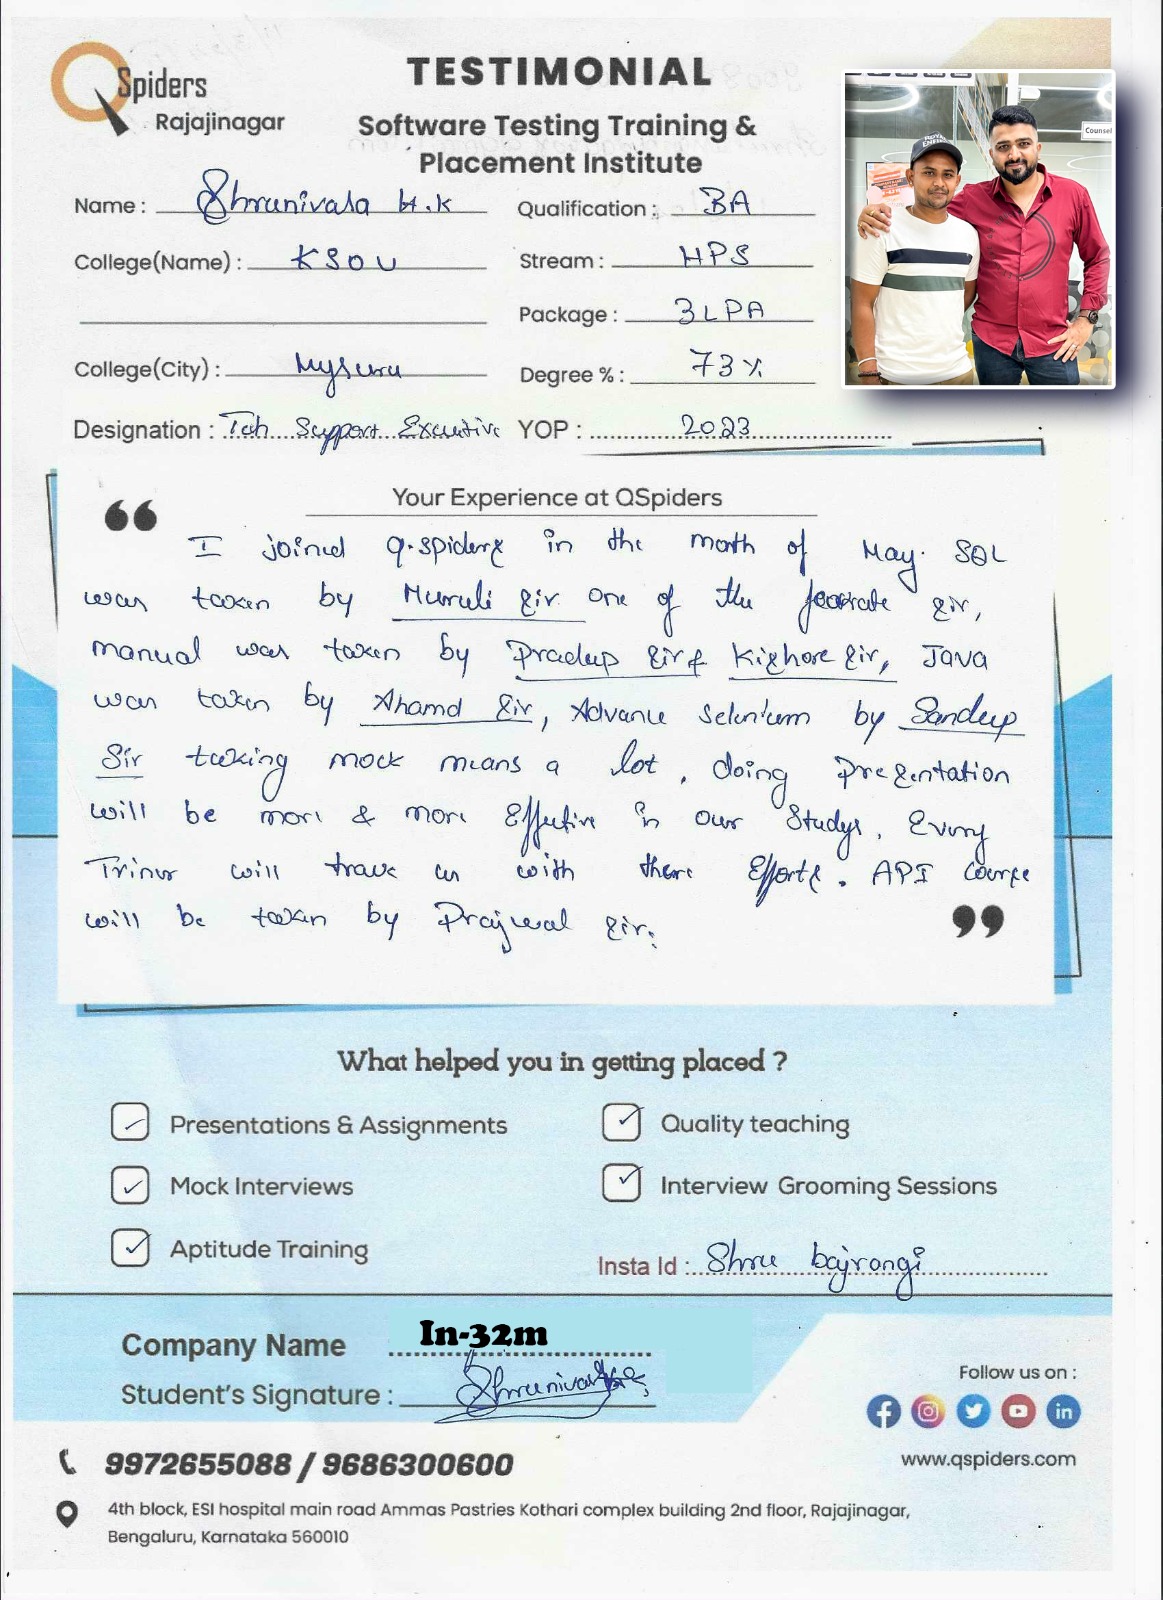 QSpiders
Rajajinagar
TESTIMONIAL
Software Testing Training &
Placement Institute
Counsel
ROYAL
ENFIELD
Name : Shrunivasa H.K
Qualification : BA
College(Name) : KSOU
Stream : HPS
Package : 3LPA
College(City) : Mysuru
Degree % : 73%
Designation : Tech Support Executive
YOP : 2023
Your Experience at QSpiders
“
I joined Q.spiders in the month of May. SQL
was taken by Murali sir one of the sir,
manual was taken by Pradeep sir & Kishore sir, JAVA
was taken by Ahamd Sir, Advance Selenium by Sandeep
Sir taking mock means a lot, doing Presentation
will be more & more Effective in our Studys, Every
Triner will us with there Efforts. API Course
will be taken by Prajwal sir.
”
What helped you in getting placed ?
✓ Presentations & Assignments
✓ Quality teaching
✓ Mock Interviews
✓ Interview Grooming Sessions
✓ Aptitude Training
Insta Id : Shru bajrangi
Company Name In-32m
Student's Signature : Shrunivasa
Follow us on :
9972655088 / 9686300600
www.qspiders.com
4th block, ESI hospital main road Ammas Pastries Kothari complex building 2nd floor, Rajajinagar,
Bengaluru, Karnataka 560010